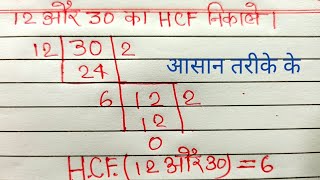 12 और 30 का HCF निकाले ।
12 30 2
24
आसान तरीके के
6 12 2
12
0
H.C.F. (12 और 30) = 6